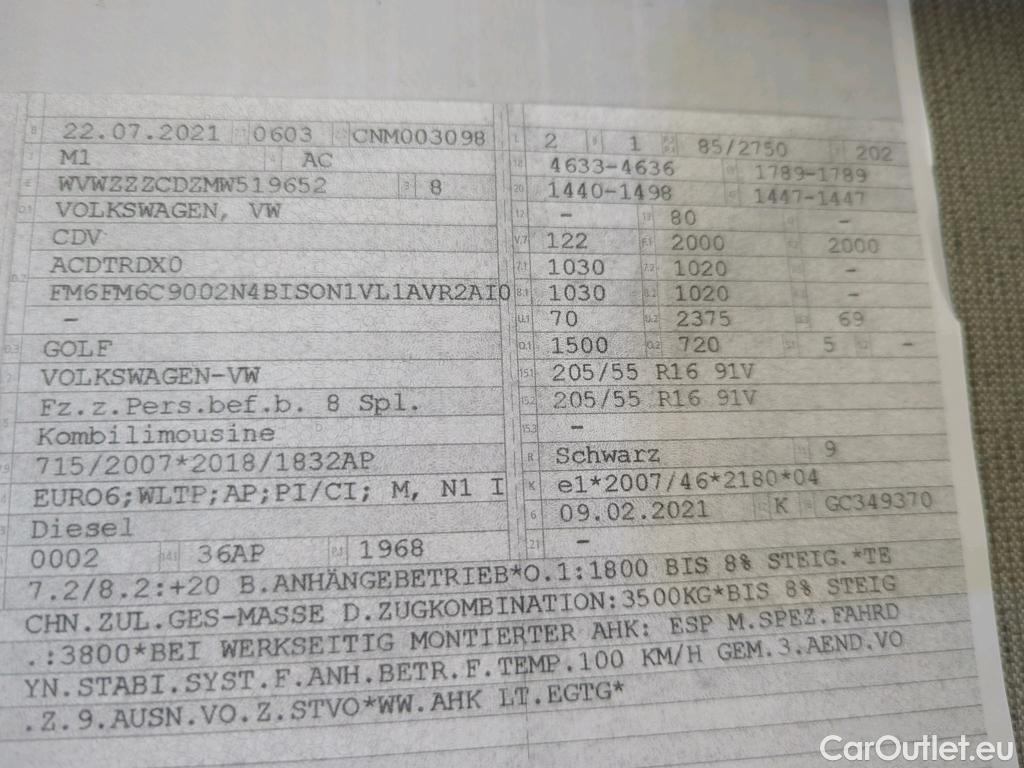 B 22.07.2021 0603 CNM003098
M1 AC
WVWZZZCDZMW519652 8
VOLKSWAGEN, VW
CDV
ACDTRDX0
FM6FM6C9002N4BISON1VL1AVR2AI0
–
GOLF
VOLKSWAGEN-VW
Fz.z.Pers.bef.b. 8 Spl.
Kombilimousine
715/2007*2018/1832AP
EURO6;WLTP;AP;PI/CI; M, N1 I
Diesel
0002 36AP P.1 1968
2 1 85/2750 202
4633-4636 1789-1789
1440-1498 1447-1447
– 80 –
V.7 122 F.1 2000 2000
7.1 1030 7.2 1020 –
8.1 1030 8.2 1020 –
U.1 70 U.2 2375 69
O.1 1500 O.2 720 S.1 5 –
15.1 205/55 R16 91V
15.2 205/55 R16 91V
15.3 –
R Schwarz 9
K e1*2007/46*2180*04
6 09.02.2021 K GC349370
21 –
7.2/8.2:+20 B.ANHÄNGEBETRIEB*O.1:1800 BIS 8% STEIG.*TE
CHN.ZUL.GES-MASSE D.ZUGKOMBINATION:3500KG*BIS 8% STEIG
.:3800*BEI WERKSEITIG MONTIERTER AHK: ESP M.SPEZ.FAHRD
YN.STABI.SYST.F.ANH.BETR.F.TEMP.100 KM/H GEM.3.AEND.VO
.Z.9.AUSN.VO.Z.STVO*WW.AHK LT.EGTG*
CarOutlet.eu